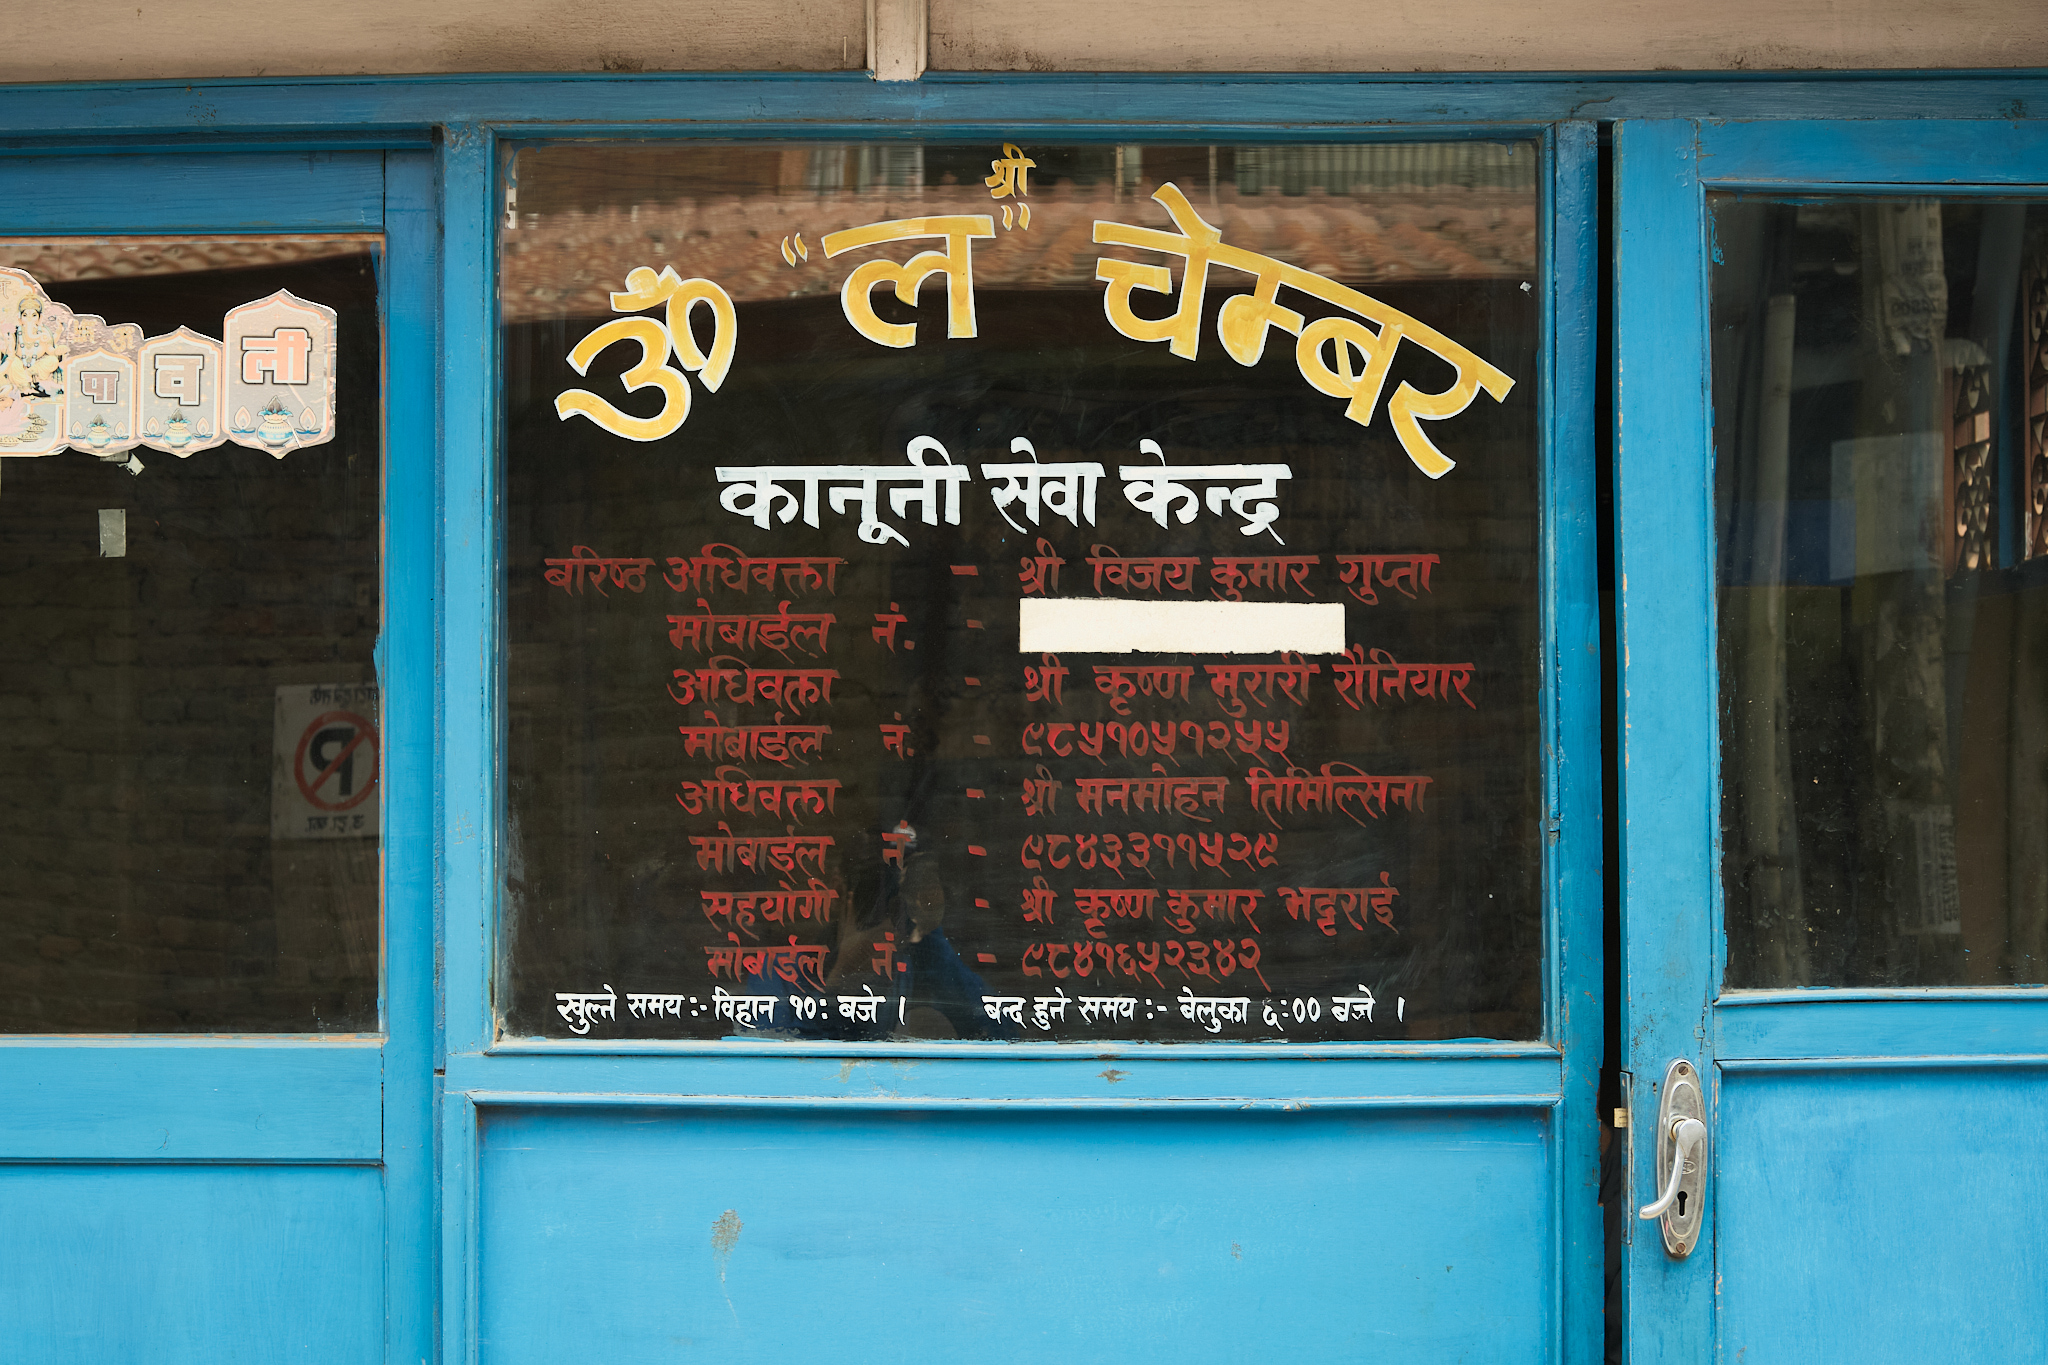 श्री
ॐ "ल" चेम्बर
कानूनी सेवा केन्द्र
बरिष्ठ अधिवक्ता - श्री विजय कुमार गुप्ता
मोबाईल नं. -
अधिवक्ता - श्री कृष्ण मुरारी रौनियार
मोबाईल नं. - ९८५१०५१२५५
अधिवक्ता - श्री मनमोहन तिमिल्सिना
मोबाईल नं - ९८४३३११५२९
सहयोगी - श्री कृष्ण कुमार भट्टराई
मोबाईल नं. - ९८४१६५२३४२
खुल्ने समय :- विहान १०: बजे । बन्द हुने समय :- बेलुका ६:०० बजे ।
पा व ली